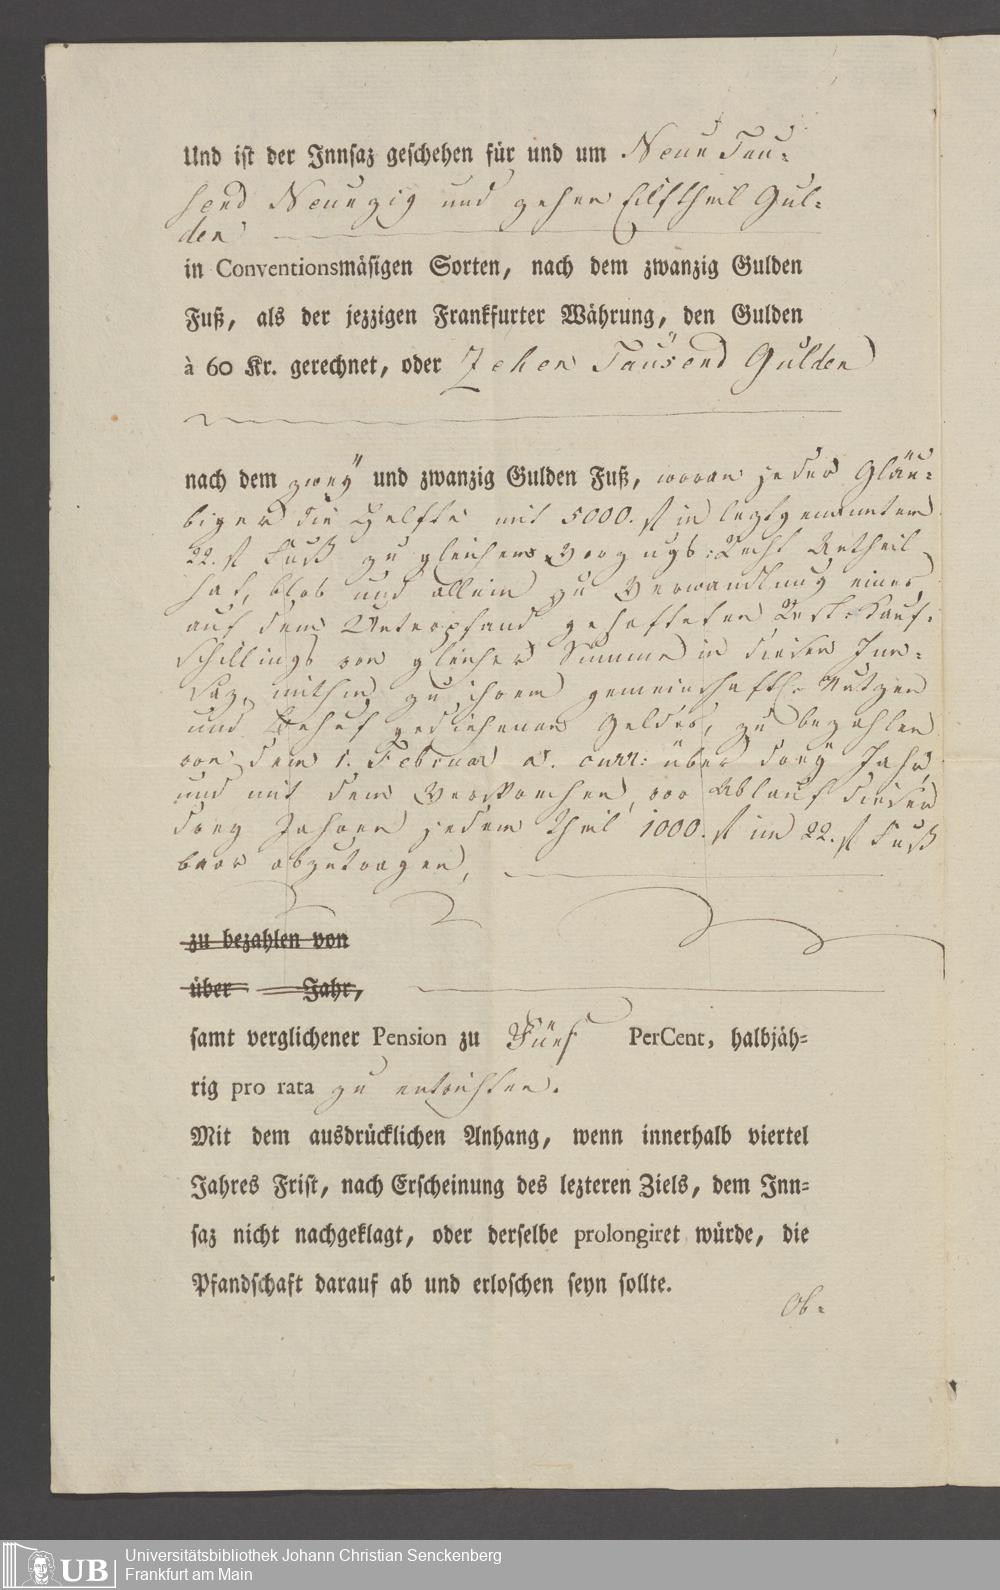 Und ist der Innsaz geschehen für und um Neun Tau-
send Neunzig und zehen Eilftheil Gul-
den
in Conventionsmäsigen Sorten, nach dem zwanzig Gulden
Fuß, als der jezzigen Frankfurter Währung, den Gulden
à 60 Kr. gerechnet, oder Zehen Tausend Gulden
nach dem zweÿ und zwanzig Gulden Fuß, woran jeder Gläu-
biger die Helfte mit 5000. fl in leztgenanntem
22. fl Fuß zu gleichem Vorzugs-Recht Antheil
hat, blos und allein zu Verwandlung eines
auf dem Unterpfand gehafteten Rest-Kauf-
schillings von gleicher Summe in diesen Inn-
saz, mithin zu ihrem gemeinschaftl. Nutzen
und Behuf gediehenen Geldes, zu bezahlen
von dem 1. Februar a. curr: über dreÿ Jahr,
und mit dem Versprechen, vor Ablauf dieser
drey Jahren jedem Theil 1000. fl im 22. fl Fuß
baar abzutragen,
zu bezahlen von
über Jahr,
samt verglichener Pension zu Fünf PerCent, halbjäh-
rig pro rata zu entrichten.
Mit dem ausdrücklichen Anhang, wenn innerhalb viertel
Jahres Frist, nach Erscheinung des lezteren Ziels, dem Inn-
saz nicht nachgeklagt, oder derselbe prolongiret würde, die
Pfandschaft darauf ab und erloschen seyn sollte.
Ob-
UB
Universitätsbibliothek Johann Christian Senckenberg
Frankfurt am Main